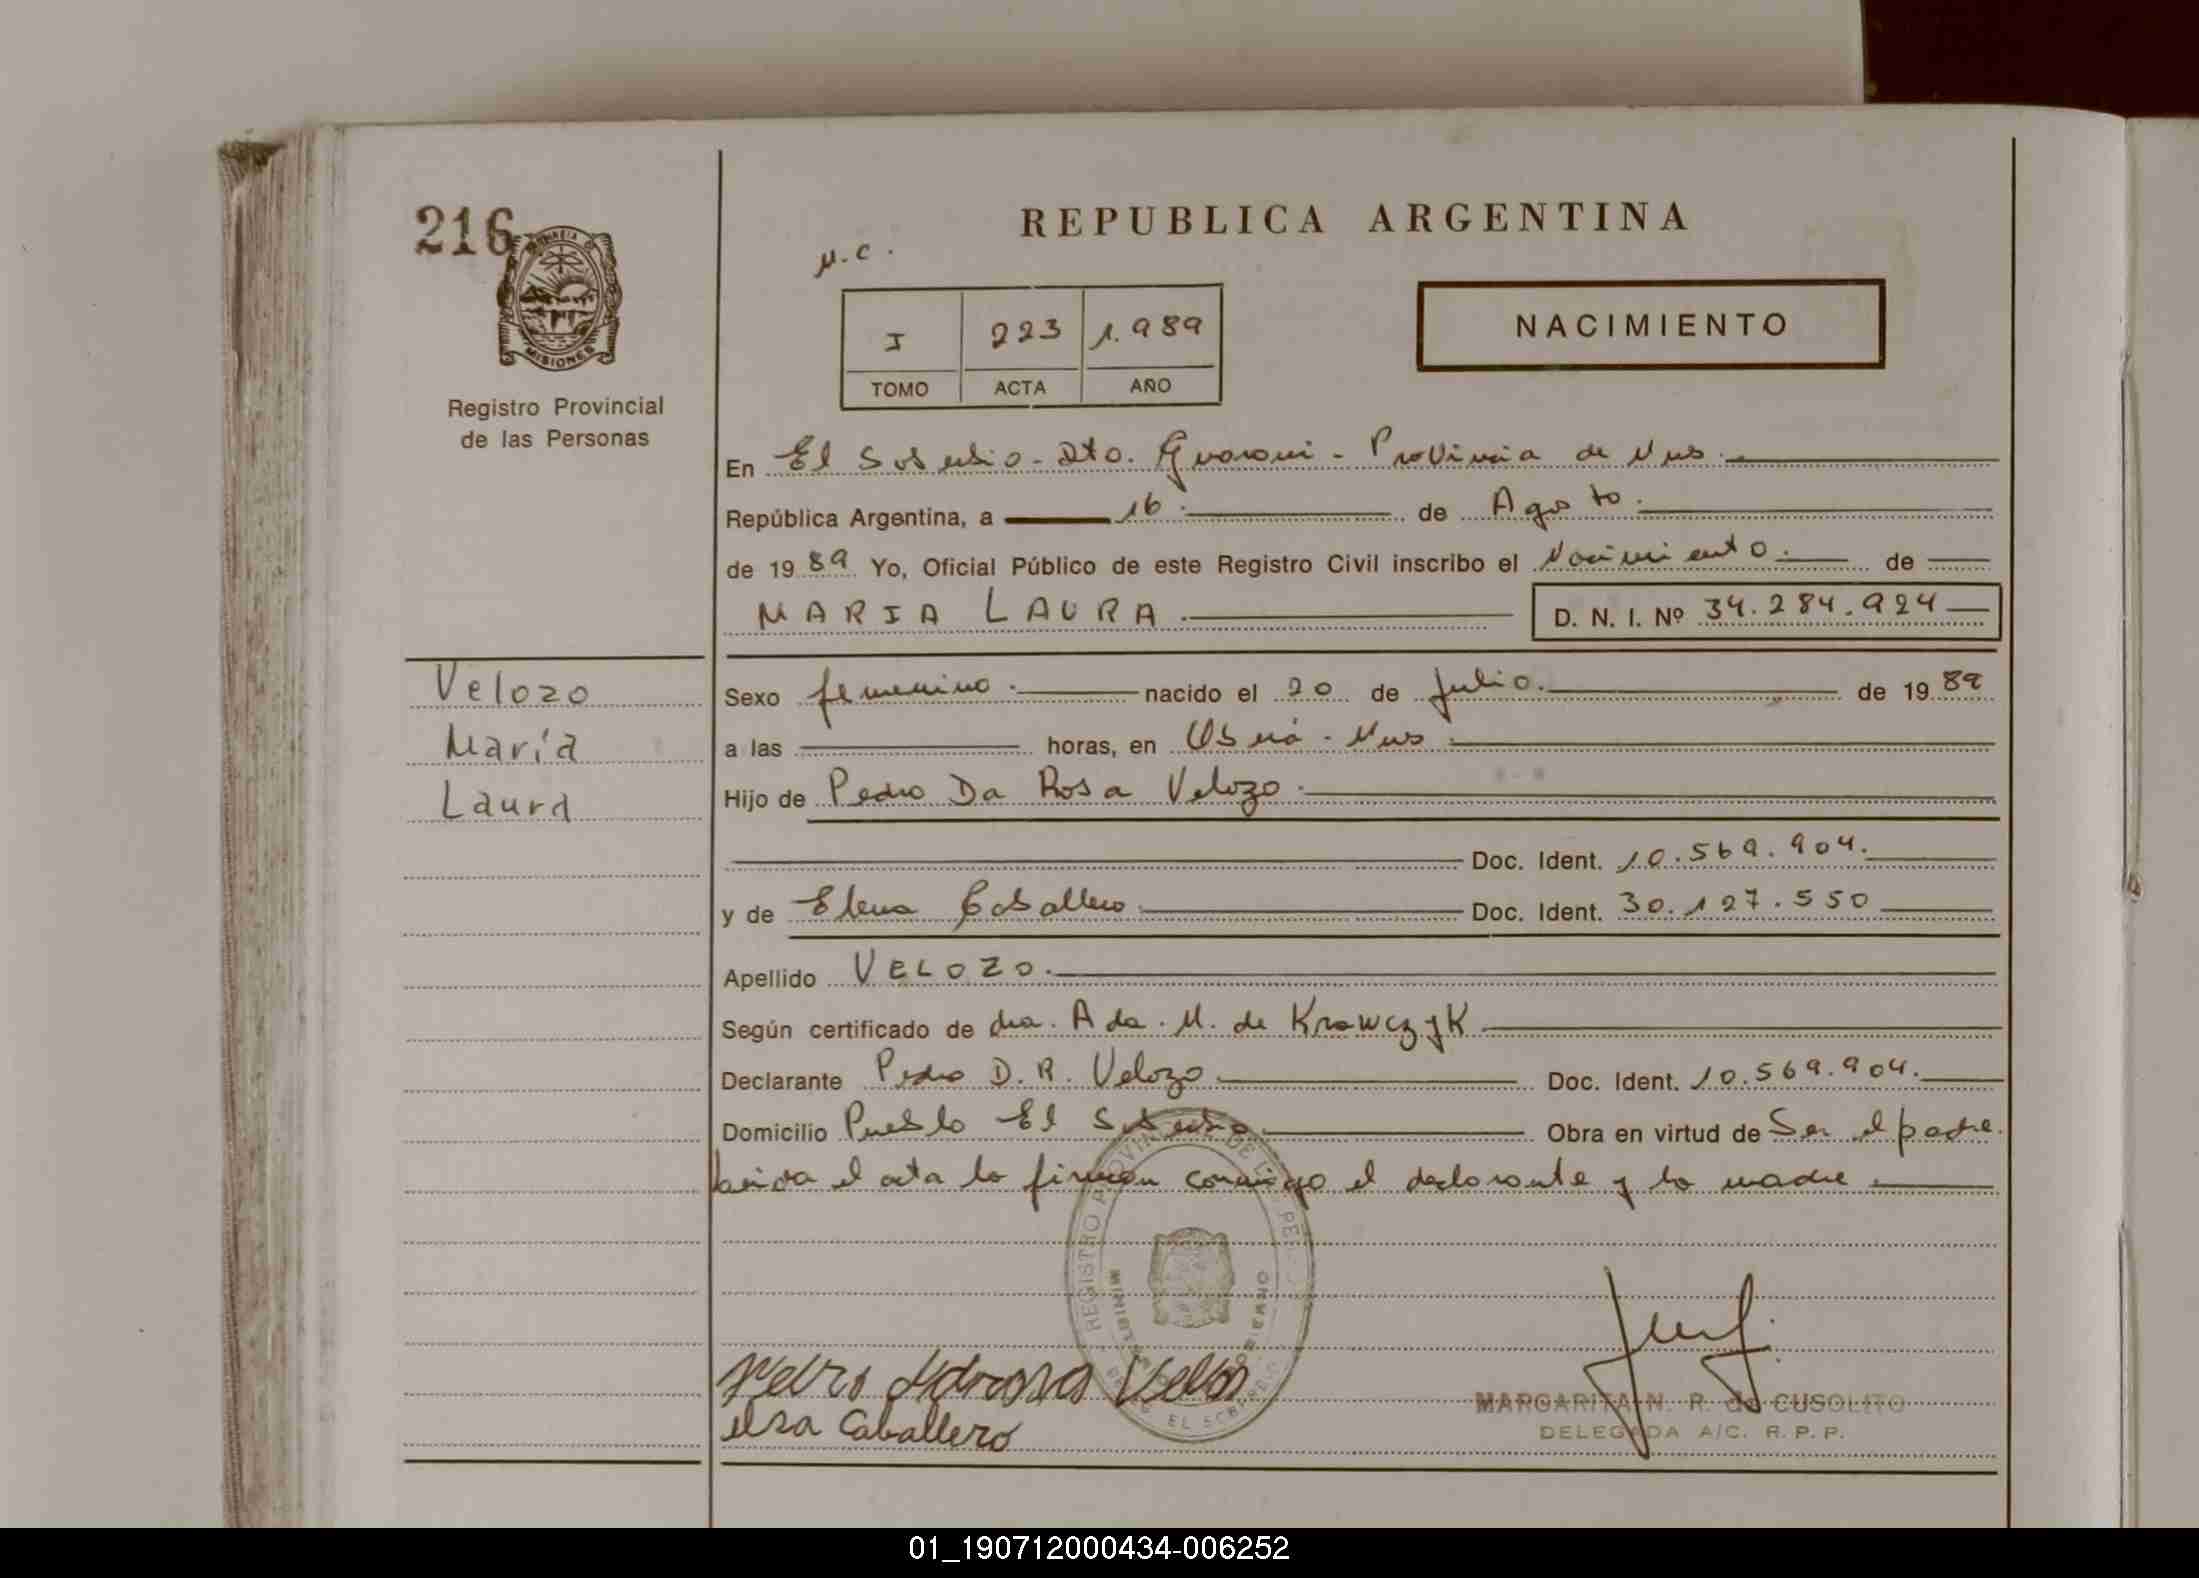 216
REPUBLICA ARGENTINA
M.C.
NACIMIENTO
I 223 1.989
TOMO ACTA AÑO
PROVINCIA DE MISIONES
Registro Provincial
de las Personas
En El Soberbio - Dto. Guarani - Provincia de Mnes.
República Argentina, a 16. de Agosto.
de 1989 Yo, Oficial Público de este Registro Civil inscribo el Nacimiento. de
MARIA LAURA. D. N. I. Nº 34.284.924
Velozo
María
Laura
Sexo femenino. nacido el 20 de Julio. de 1989
a las horas, en Oberá - Mnes
Hijo de Pedro Da Rosa Velozo.
Doc. Ident. 10.569.904.
y de Elena Caballero Doc. Ident. 30.127.550
Apellido VELOZO.
Según certificado de dra. Ada. M. de Krawczyk
Declarante Pedro D.R. Velozo Doc. Ident. 10.569.904.
Domicilio Pueblo El Soberbio Obra en virtud de Ser el padre.
Leida el acta la firman conmigo el declarante y la madre
REGISTRO PROVINCIAL DE LAS PERSONAS
EL SOBERBIO
elsa Caballero
MARGARITA N. R. de CUSOLITO
DELEGADA A/C. R. P. P.
01_190712000434-006252